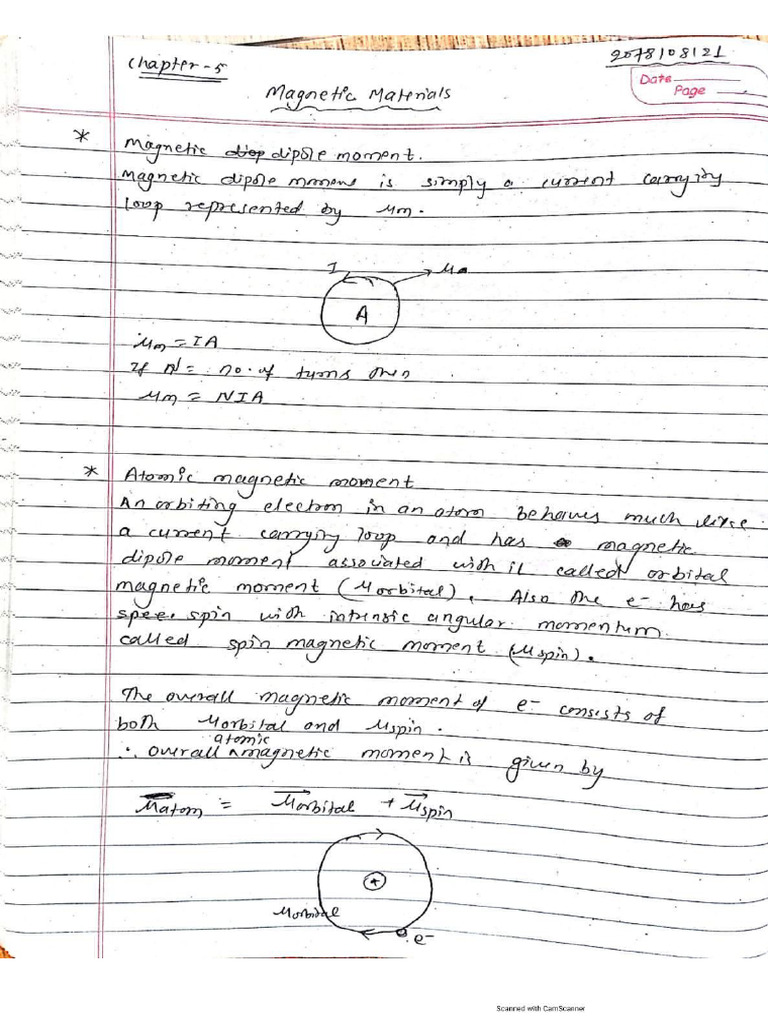 Chapter-5
2078/08/21
Date
Page
Magnetic Materials
* Magnetic dipole moment.
Magnetic dipole moment is simply a current carrying
loop represented by μm.
I μm
A
μm = IA
If N = no. of turns then
μm = NIA
* Atomic magnetic moment
An orbiting electron in an atom behaves much like
a current carrying loop and has magnetic
dipole moment associated with it called orbital
magnetic moment (μorbital). Also the e- has
spin with intrinsic angular momentum
called spin magnetic moment (μspin).
The overall magnetic moment of e- consists of
both μorbital and μspin.
∴ overall atomic magnetic moment is given by
μatom = μorbital + μspin
+
μorbital
e-
Scanned with CamScanner